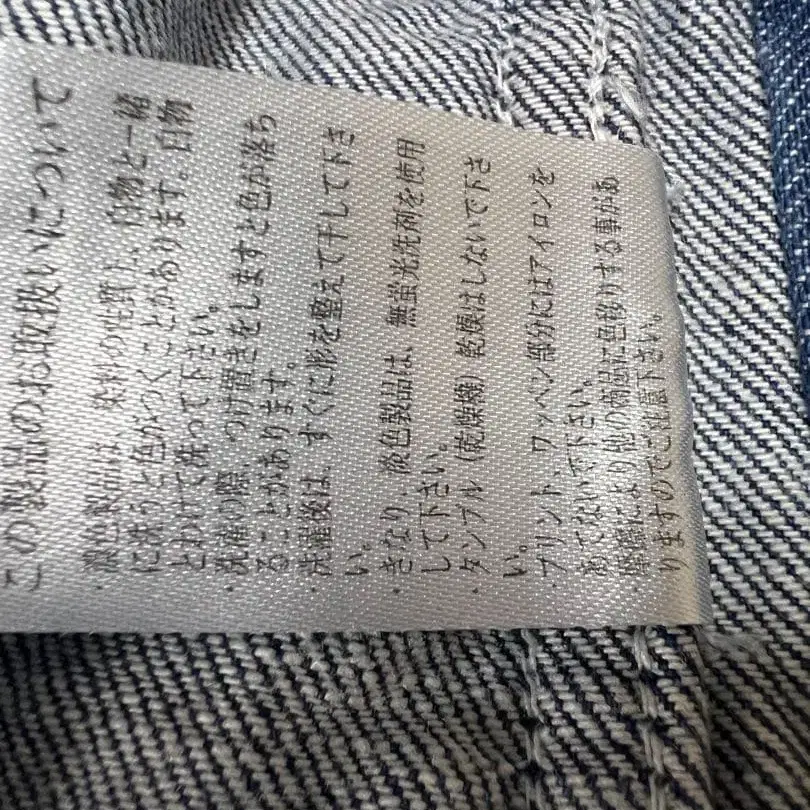 この製品のお取扱いについて
・濃色製品は、染料の性質上、白物と一緒
に洗うと色がつくことがあります。白物
とわけて洗って下さい。
・洗濯の際、つけ置きをしますと色が落ち
ることがあります。
・洗濯後は、すぐに形を整えて干して下さ
い。
・きなり、淡色製品は、無蛍光洗剤を使用
して下さい。
・タンブル（乾燥機）乾燥はしないで下さ
い。
・プリント、ワッペン部分にはアイロンを
あてないで下さい。
・摩擦により他の商品に色移りする事があ
りますのでご注意下さい。